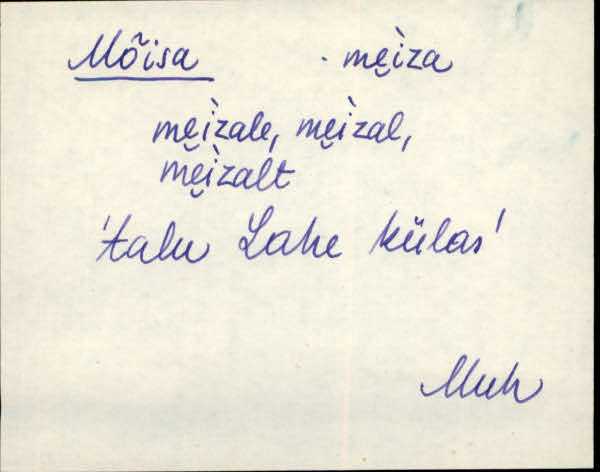 Mõisa · me̮ìza
me̮ìzale, me̮ìzal,
me̮ìzalt
'talu Lahe külas'
Muh